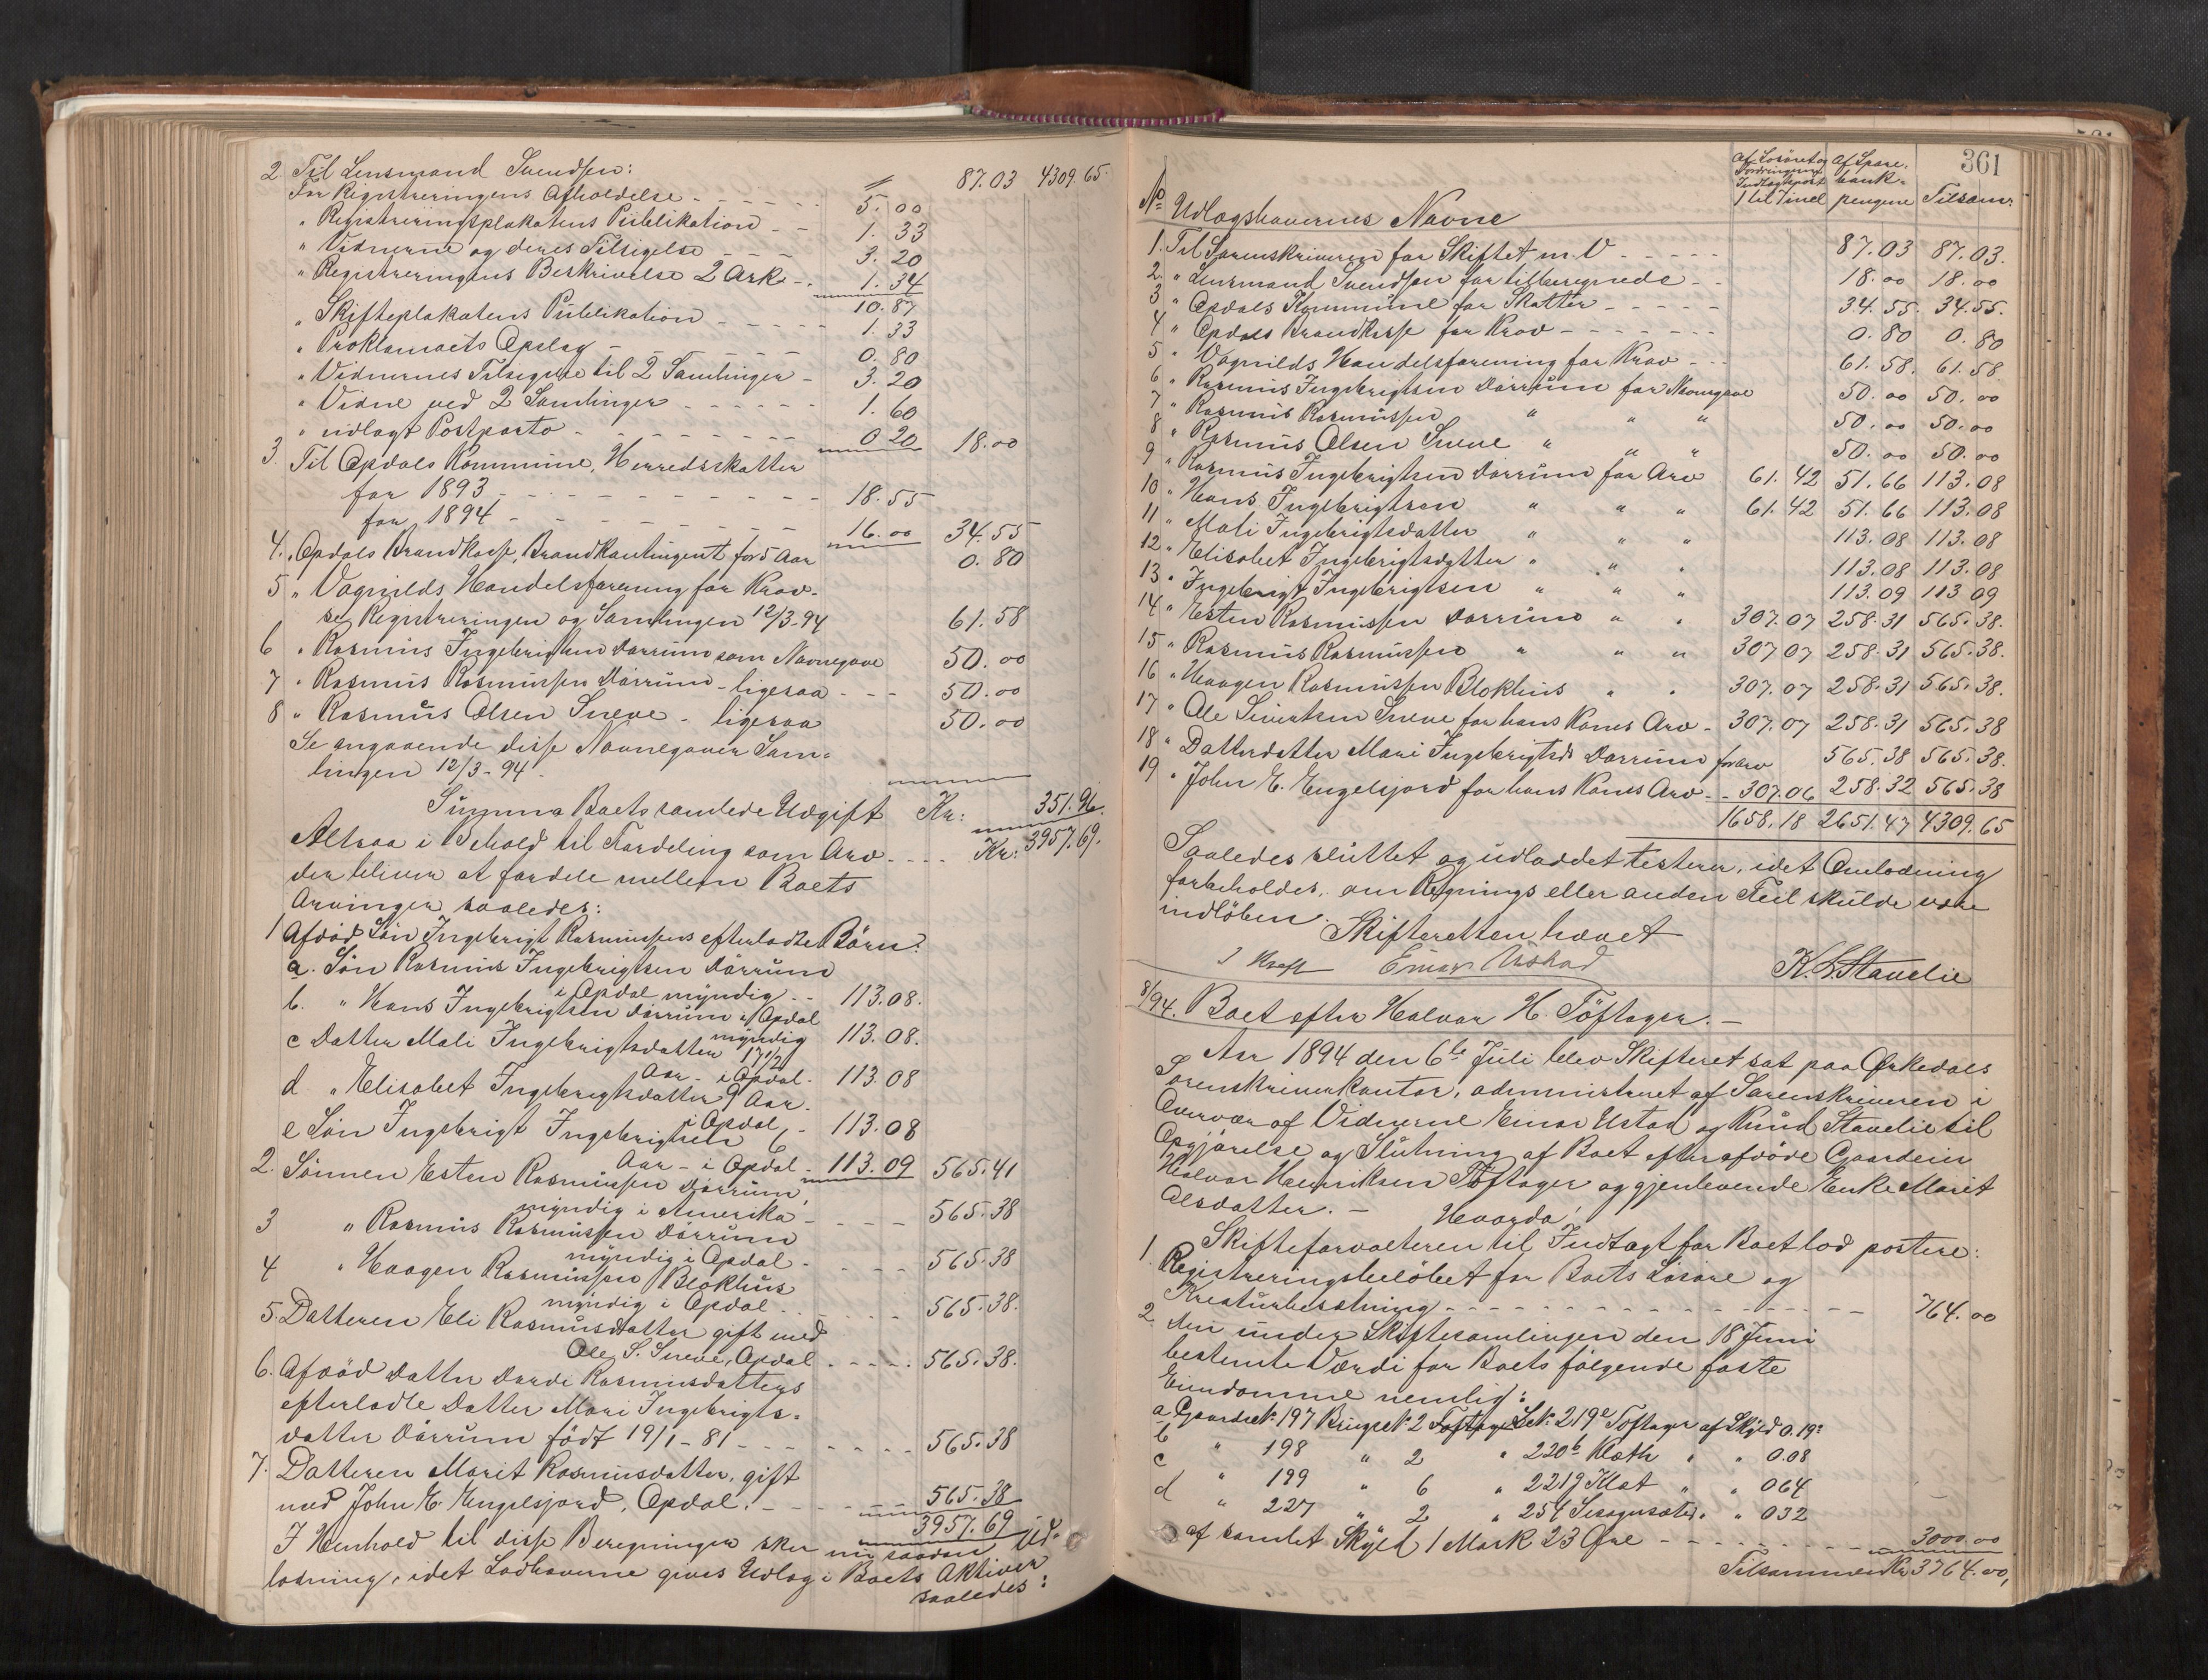 2. Til Lensmand Svendsen: 87.03 4309.65.
For Registreringens Afholdelse - - - - - 5.00
" Registreringsplakatens Publikation - - 1.33
" Vidnerne og deres Tilsigelse - - - - 3.20
" Registreringens Beskrivelse 2 Ark - . 1.34
10.87
" Skifteplakatens Publikation - - - - - 1.33
" Proklamaets Opslag - - - - - - 0.80
" Vidnernes Tilsigelse til 2 Samlinger - 3.20
" Vidne ved 2 Samlinger - - - - - - 1.60
" udlagt Postporto - - - - - - - - 0.20 18.00
3. Til Opdals Kommune, Herredsskatter
for 1893 - - - - - - - - - - - 18.55
for 1894 - - - - - - - - - - 16.00 34.55
4. " Opdals Brandkasse, Brandkontingent for 5 Aar 0.80
5 " Vognilds Handelsforening for Krav.
se Registreringen og Samlingen 12/3-94 61.58
6 " Rasmus Ingebrigtsen Dørrum som Navnegave 50.00
7 " Rasmus Rasmussen Dørrum - ligesaa - - - 50.00
8 " Rasmus Olsen Sneve - ligesaa 50.00
Se angaaende disse Navnegaver Sam=
lingen 12/3-94.
Summa Boets samlede Udgift Kr: 351.96.
Altsaa i Behold til Fordeling som Arv - - - - Kr: 3957.69.
der bliver at fordele mellem Boets
Arvinger saaledes:
1 Afdød Søn Ingebrigt Rasmussens efterladte Børn:
a. Søn Rasmus Ingebrigtsen Dørrum
i Opdal myndig - - 113.08.
b. " Hans Ingebrigtsen Dørrum i Opdal
myndig 113.08.
c Datter Mali Ingebrigtsdatter 17 1/2
Aar - i Opdal - 113.08
d " Elisabet Ingebrigtsdatter 9 Aar.
i Opdal - 113.08
e Søn Ingebrigt Ingebrigtsen 6
Aar - i Opdal - 113.09 565.41
2. Sønnen Esten Rasmussen Dørrum,
myndig i Amerika - - - - 565.38
3 " Rasmus Rasmussen Dørrum
myndig i Opdal - - - - 565.38
4 " Haagen Rasmussen Blokhus
myndig i Opdal - - - - 565.38.
5. Datteren Eli Rasmusdatter gift med
Ole S. Sneve, Opdal - - - - - 565.38.
6. Afdød Datter Dordi Rasmusdatters
efterladte Datter Mari Ingebrigts=
datter Dørrum født 19/1-81 - - - - - - - - 565.38
7. Datteren Marit Rasmusdatter, gift
med John E. Engelsjord, Opdal. - - - - - - 565.38
3957.69
I Henhold til disse Beregninger sker nu saadan Ud=
lodning, idet Lodhaverne gives Udlæg i Boets Aktiver
saaledes:
361
No Udlægshavernes Navne
Af Løsøret og Fordringerne Indtægtspost 1 til 7 incl
Af Spare=bank=pengene
Tilsam:
1. Til Sorenskriveren for Skiftet m.V. - - - - - 87.03 87.03.
2. " Lensmand Svendsen for tilberegnede - - 18.00 18.00
3 " Opdals Kommune for Skatter - - - - - 34.55. 34.55.
4 " Opdals Brandkasse for Krav - - - - - - - 0.80 0.80
5 " Vognilds Handelsforening for Krav - - - 61.58. 61.58
6 " Rasmus Ingebrigtsen Dørrum for Navnegave 50.00 50.00
7 " Rasmus Rasmussen " " " 50.00 50.00
8 " Rasmus Olsen Sneve " " " 50.00 50.00
9 " Rasmus Ingebrigtsen Dørrum for Arv 61.42 51.66 113.08
10 " Hans Ingebrigtsen " " " 61.42 51.66 113.08
11 " Mali Ingebrigtsdatter " " " 113.08 113.08
12 " Elisabet Ingebrigtsdatter " " " 113.08 113.08
13 " Ingebrigt Ingebrigtsen " " " 113.09 113.09
14 " Esten Rasmussen Dørrum " " 307.07 258.31 565.38.
15 " Rasmus Rasmussen " " " 307.07 258.31 565.38.
16 " Haagen Rasmussen Blokhus " " 307.07 258.31 565.38.
17 " Ole Sivertsen Sneve for hans Kones Arv - 307.07 258.31 565.38
18 " Datterdatter Mari Ingebrigtsd. Dørrum for Arv 565.38 565.38.
19 " John E. Engelsjord for hans Kones Arv - - 307.06 258.32 565.38
1658.18 2651.47 4309.65
Saaledes sluttet og udloddet testerer, idet Omlodning
forbeholdes, om Regnings eller anden Feil skulde være
indløben.
Skifteretten hævet
I. Kraft Einar Ustad K. L. Stavelie
8/94. Boet efter Halvor H. Töftager. -
Aar 1894 den 6te Juli blev Skifteret sat paa Ørkedals
Sorenskriverkontor, administreret af Sorenskriveren i
Overvær af Vidnerne Einar Ustad og Knud Stavelie til
Opgjørelse og Slutning af Boet efter afdøde Gaardeier
Halvor Henriksen Töftager og gjenlevende Enke Marit
Olsdatter. - Hvorda:
Skifteforvalteren til Indtægt for Boet lod postere:
1. Registreringsbeløbet for Boets Løsøre og
Kreaturbesætning - - - - - - - - - - - - - - - 764.00
2. den under Skiftesamlingen den 18 Juni
bestemte Værdi for Boets følgende faste
Eiendomme nemlig:
a Gaardsn: 197 Brugsn: 2 Toftager LN: 219e Toftager af Skyld 0.19:
b " 198 " 2 " 220b Kleth " " 0.08
c " 199 " 6 " 221g Klet " " 064
d " 227 " 2 " 254 " " 032
af samlet Skyld 1 Mark 23 Øre - - - - - - - - - 3000.00
Tilsammen Kr 3764.00,